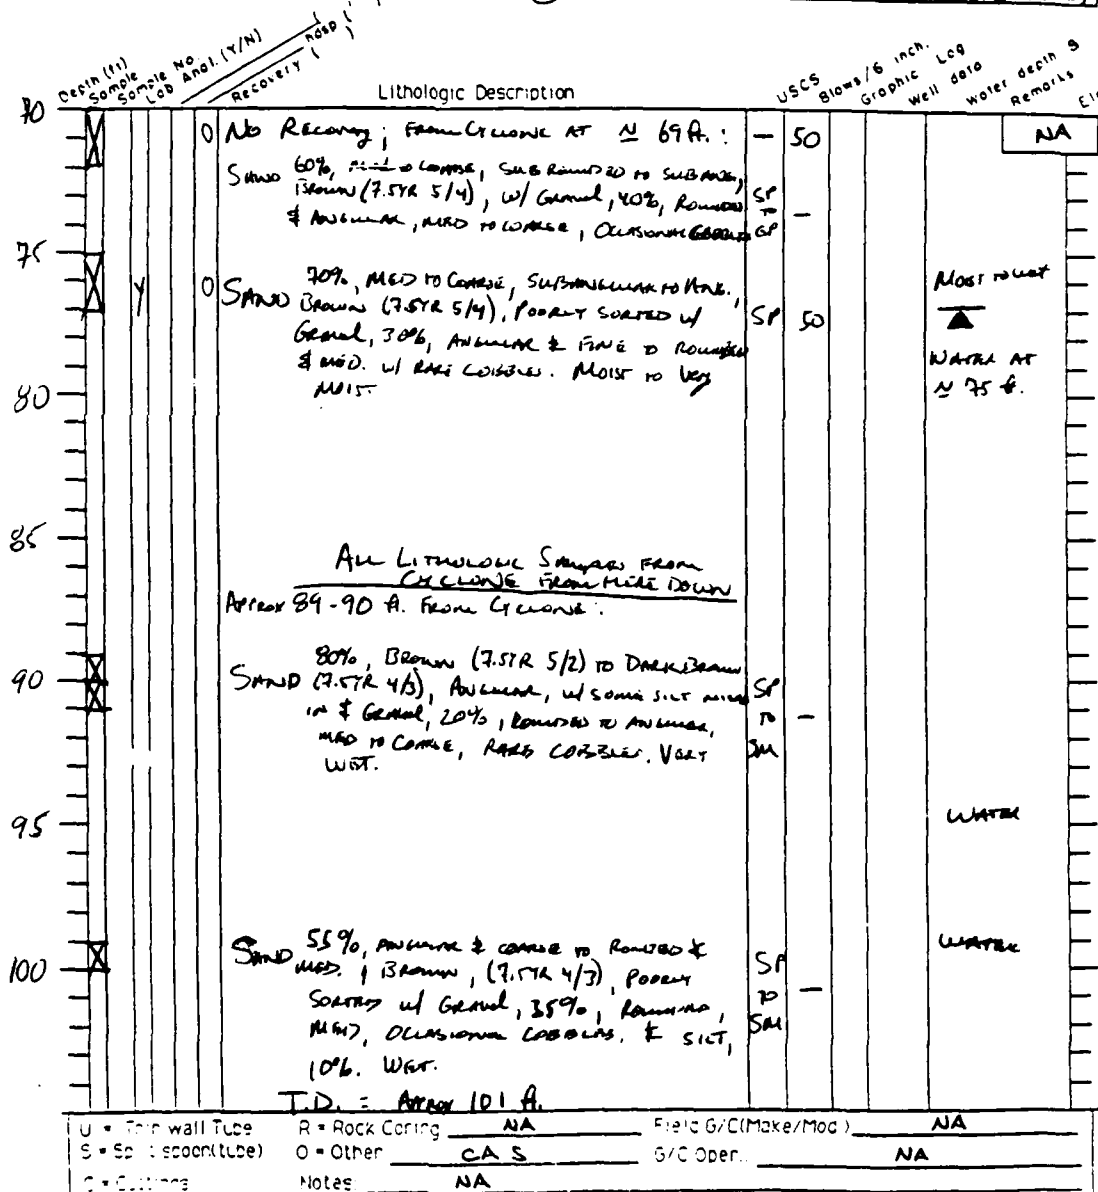 Depth (ft)
Sample
Sample No.
Lab Anal. (Y/N)
Recovery ( )
Lithologic Description
USCS
Blows/6 inch.
Graphic Log
Well data
Water depth
Remarks
70
0 No Recovery; From Cyclone at ~ 69 ft.: — 50 NA
Sand 60%, to coarse, subrounded to subang,
Brown (7.5YR 5/4), w/ Gravel, 40%, Rounded SP
& Angular, med to coarse, occasional cobbles to GP —
75
Y 0 Sand 70%, med to coarse, subangular to ang., Moist to wet
Brown (7.5YR 5/4), poorly sorted w/ SP 50
Gravel, 30%, angular & fine to rounded
& med. w/ rare cobbles. Moist to very Water at
80 moist. ~ 75 ft.
85
All Lithologic Samples From
Cyclone From Here Down
Approx 89-90 ft. From Cyclone:
Sand 80%, Brown (7.5YR 5/2) to Dark Brown
90 (7.5YR 4/3), Angular, w/ some silt mixed SP
in & Gravel, 20%, rounded to angular, to —
med to coarse, rare cobbles. Very SM
wet.
95 Water
Sand 55%, angular & coarse to rounded & Water
100 med., Brown, (7.5YR 4/3), poorly SP
sorted w/ Gravel, 35%, rounded, to —
med, occasional cobbles, & silt, SM
10%. Wet.
T.D. = Approx 101 ft.
U = Thin wall Tube R = Rock Coring NA Field G/C(Make/Mod.) NA
S = Split spoon(tube) O = Other CAS G/C Oper.. NA
C = Cuttings Notes: NA